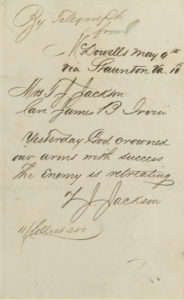 By Telegraph
from
McDowells May 9th
via Staunton Va. 10th
Mrs T J Jackson
Care James P Irvin
Yesterday God crowned
our arms with success
The enemy is retreating
T J Jackson